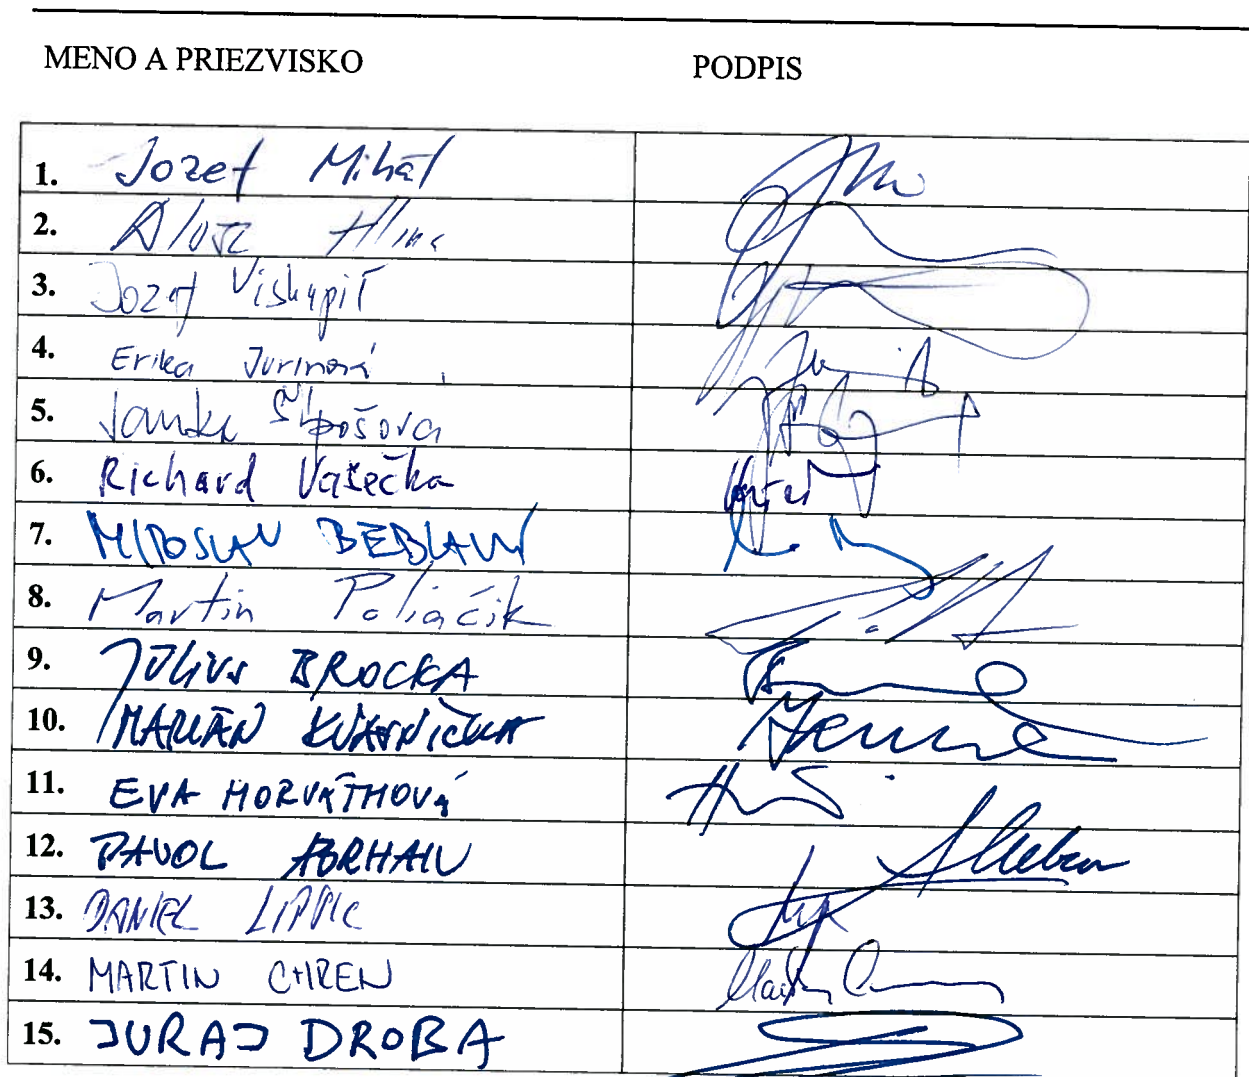 MENO A PRIEZVISKO PODPIS
1. Jozef Mihál
2. Alojz Hlina
3. Jozef Viskupič
4. Erika Jurinová
5. Janka Šípošová
6. Richard Vašečka
7. MIROSLAV BEBLAVÝ
8. Martin Poliačik
9. JÚLIUS BROCKA
10. MARIÁN KVASNIČKA
11. EVA HORVÁTHOVÁ
12. PAVOL ABRHAN
13. DANIEL LIPŠIC
14. MARTIN CHREN
15. JURAJ DROBA